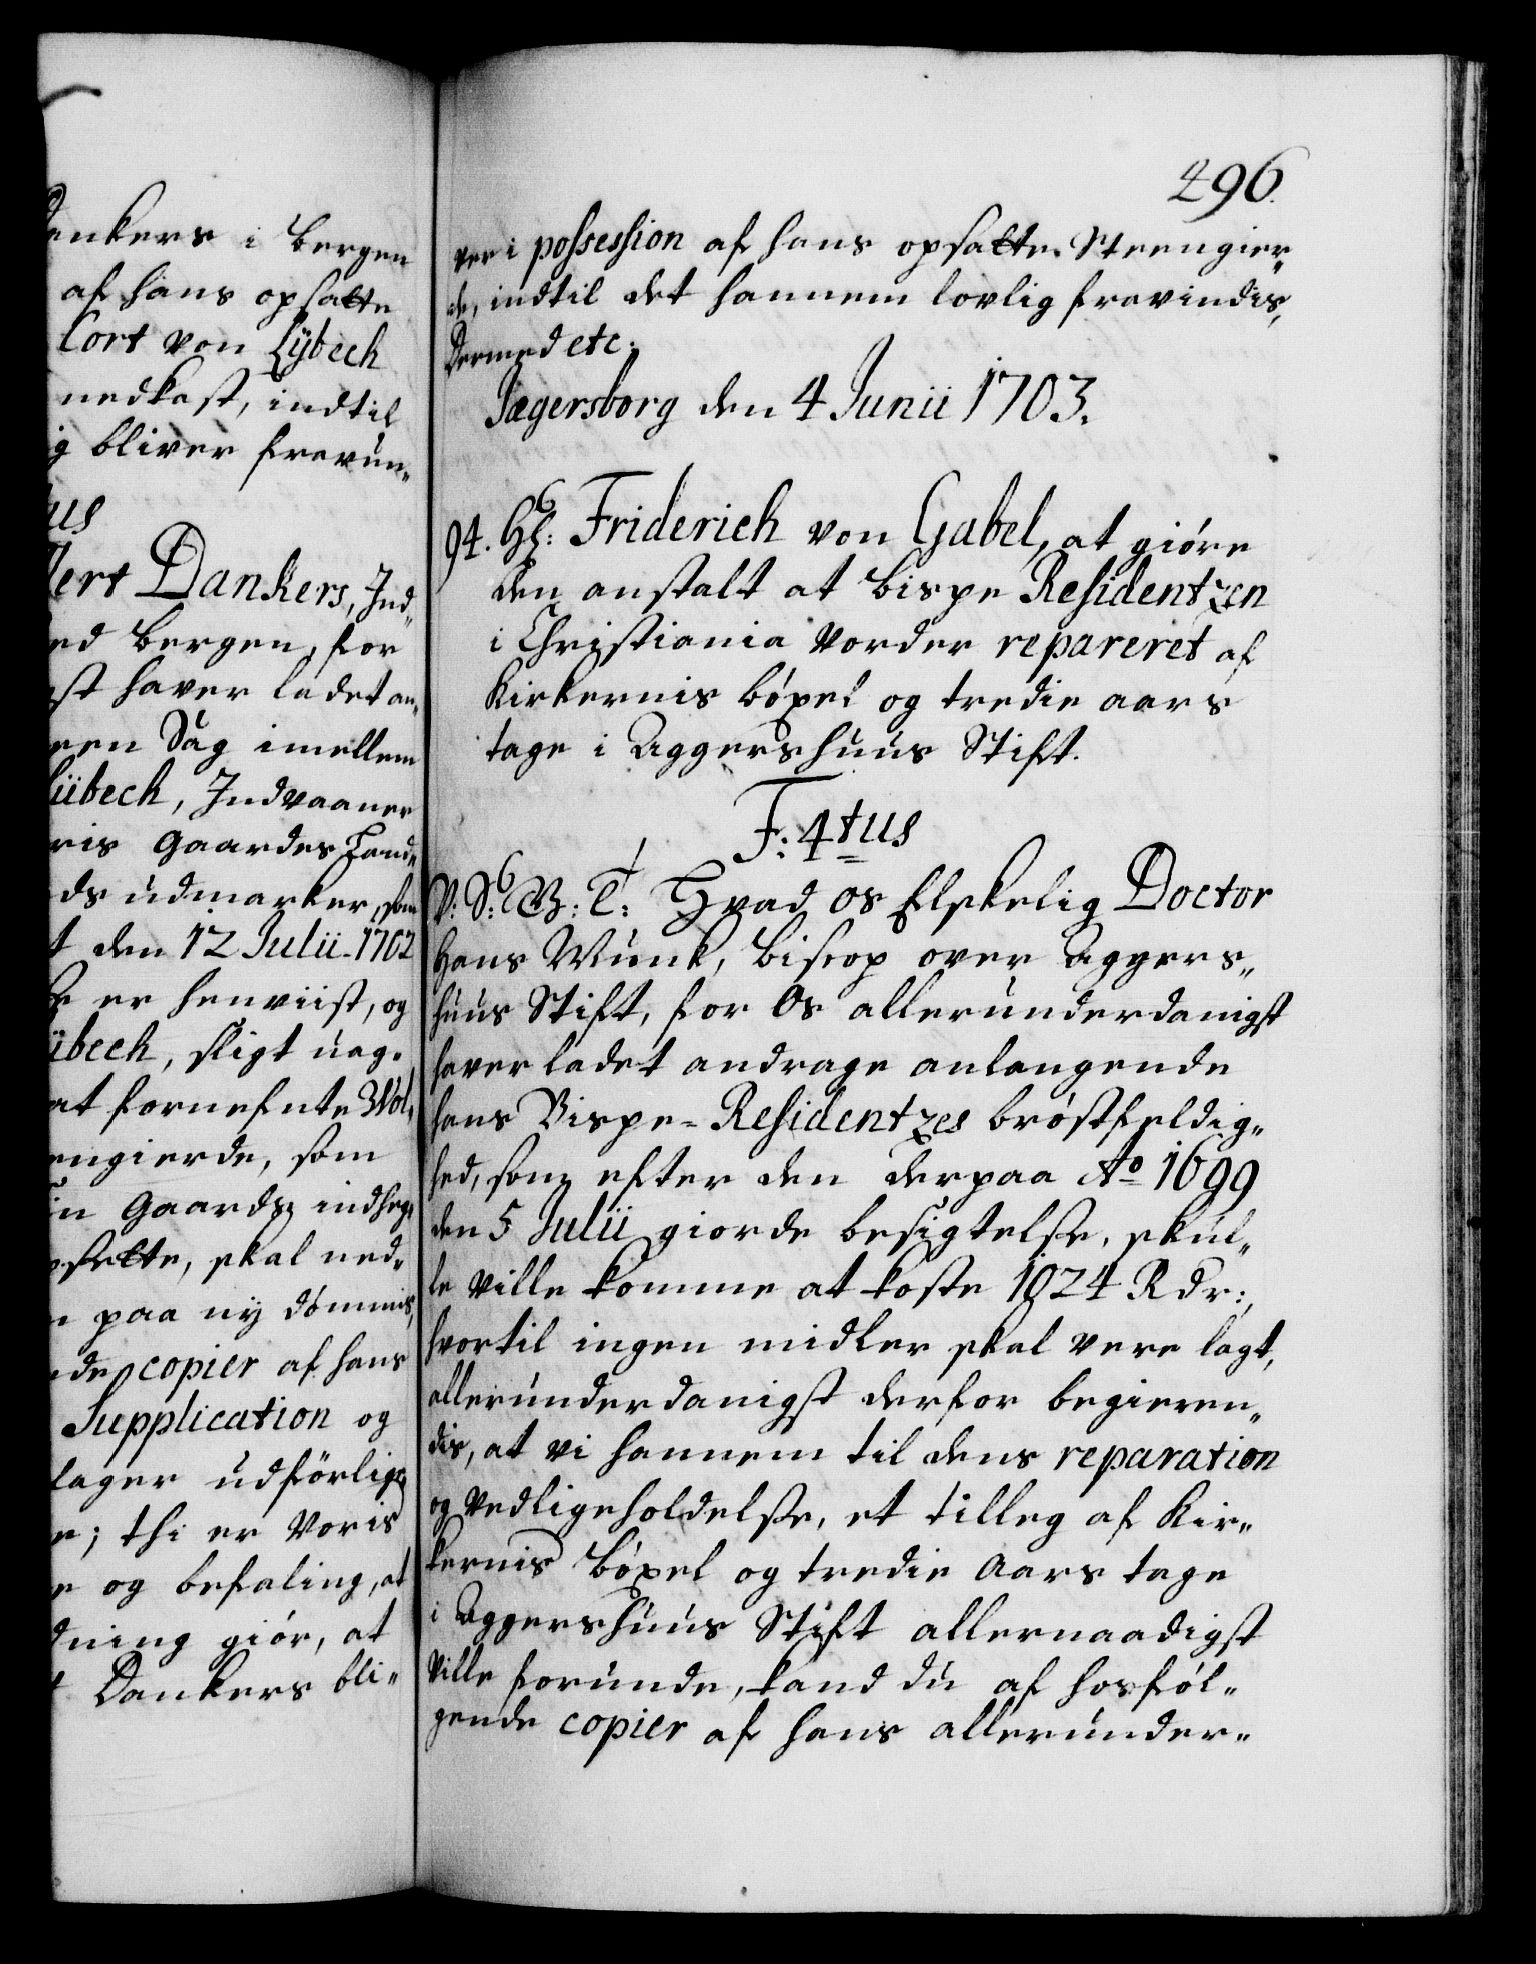 ankers i Bergen
af hans opsatte
Cort von Lÿbech
nedkast, indtil
g bliver fravun„
us
lert Dankers, Ind„
ed Bergen, for
st haver ladet an„
een Sag imellem
übech, Indvaaner
ris Gaardes Lande
ds udmarker, som
t den 12 Julii 1702
er henviist, og
übech, sligt uag„
at fornefnte Wol„
engierde, som
in Gaards indheg„
sette, skal ned„
paa nÿ dömmis,
nde copier af hans
Supplication og
lager udförlig
e; thi er Voris
e og befaling, at
dning giör, at
t Dankers bli„
496.
ver i possession af hans opsatte Steengier„
de, indtil det hannem lovlig fravindis,
Dermed etc:
Jægersborg den 4 Junii 1703.
94. Hl: Friderich von Gabel, at giöre
den anstalt at Bispe Residentzen
i Christiania vorder repareret af
Kirkernis böxel og tredie aars
tage i Aggershuus Stift.
F: 4tus
V: S: G: B: T: Hvad os Elskelig Doctor
Hans Munk, Biscop over Aggers„
huus Stift, for Os allerunderdanigst
haver ladet andrage anlangende
hans Bispe-Residentzes bröstfeldig„
hed, som efter den derpaa Ao 1699
den 5 Julii giorde besigtelse, skul„
le ville komme at koste 1024 Rdr:,
hvortil ingen midler skal vere lagt,
allerunderdanigst derfor begieren„
dis, at vi hannem til dens reparation
og Vedligeholdelse, et tilleg af Kir„
kernis böxel og tredie Aars tage
i Aggershuus Stift allernaadigst
ville forunde, kand du af hosföl„
gende copier af hans allerunder„